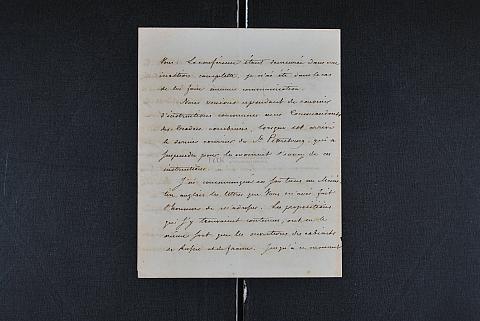 Nous. La conférence étant demeurée dans une
inaction complette, je n'ai été dans le cas
de lui faire aucune communication.
Nous venions cependant de convenir
d'instructions communes aux Commandans
des escadres combinées, lorsque est arrivé
le dernier courrier de St Petersbourg, qui a
suspendu pour le moment l'envoi de ces
instructions.
J'ai communiqué au
anglais les lettres que Vous m'avez fait
l'honneur de m'adresser. Les propositions
qui s'y trouvaient contenues, ont eu le
même sort que les ouvertures des cabinets
de Russie et de France. Jusqu'à ce moment